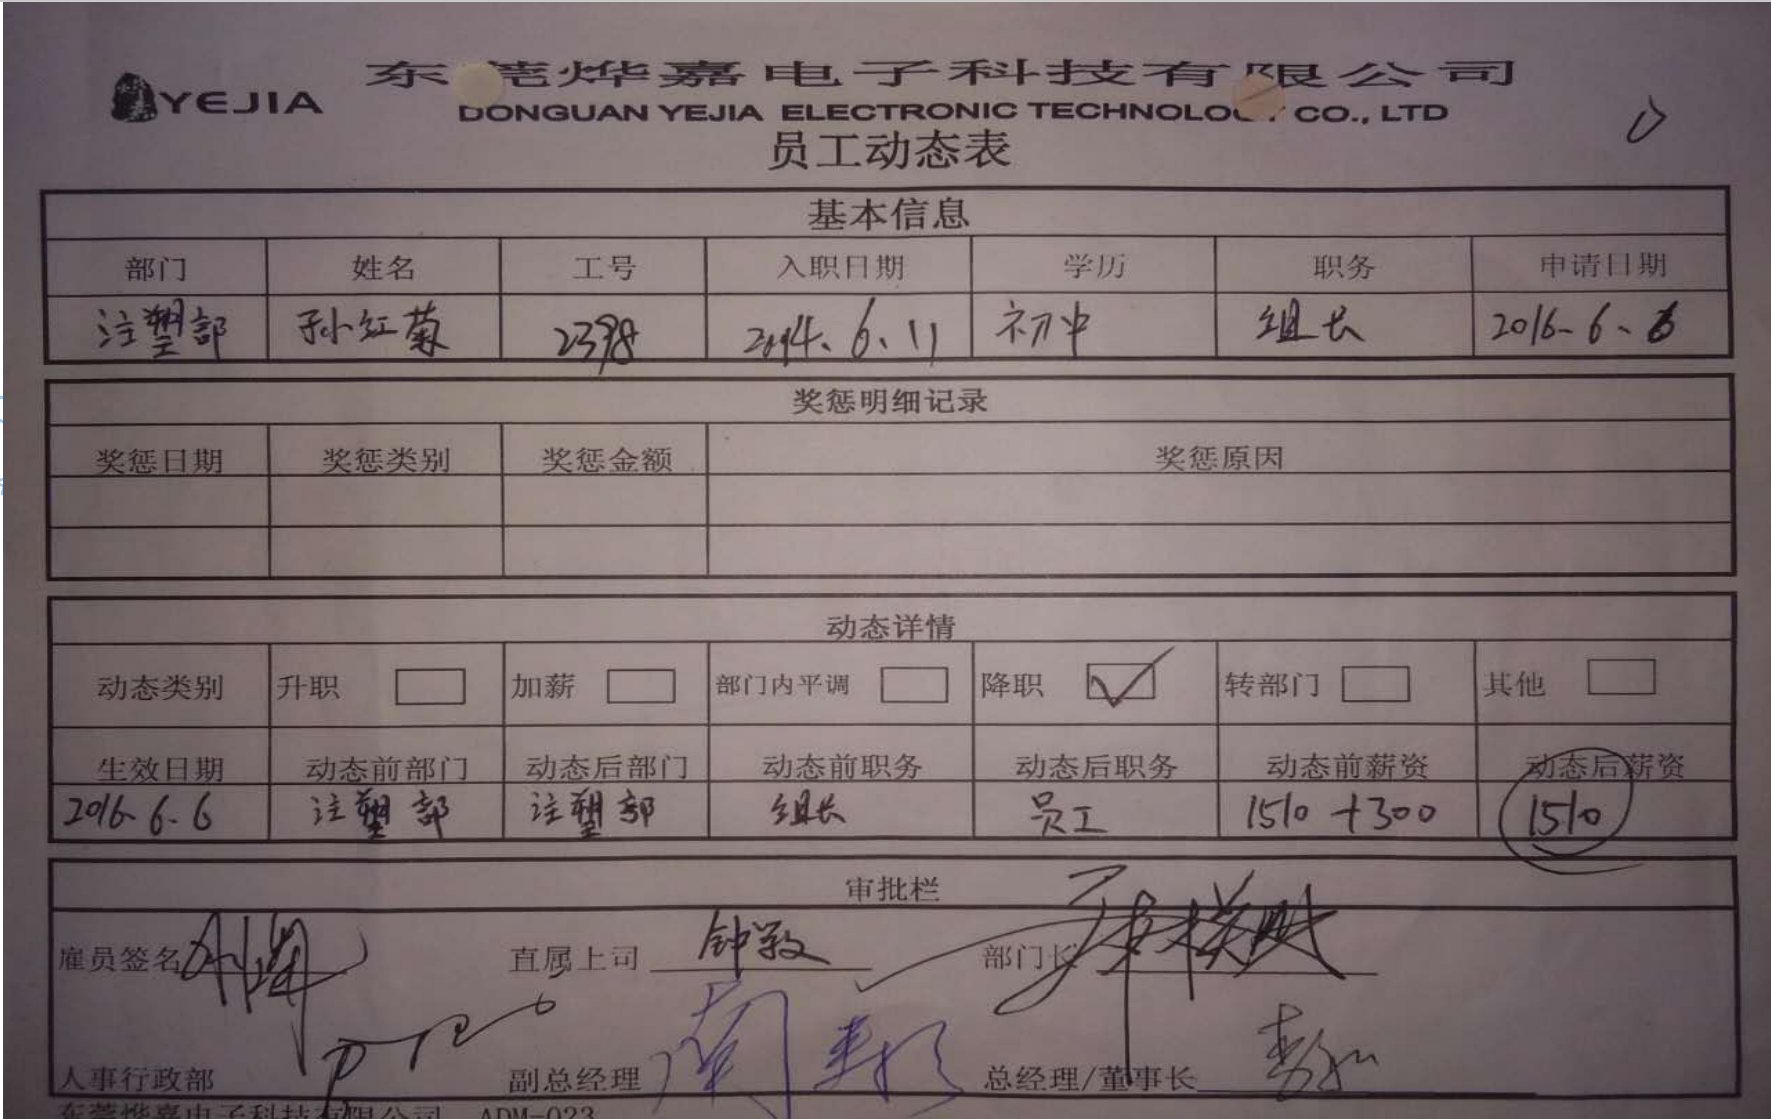 YEJIA
东莞烨嘉电子科技有限公司
DONGUAN YEJIA ELECTRONIC TECHNOLO CO., LTD
员工动态表
基本信息
部门 姓名 工号 入职日期 学历 职务 申请日期
注塑部 孙红菊 2398 2014.6.11 初中 组长 2016.6.6
奖惩明细记录
奖惩日期 奖惩类别 奖惩金额 奖惩原因
动态详情
动态类别 升职 加薪 部门内平调 降职 转部门 其他
生效日期 动态前部门 动态后部门 动态前职务 动态后职务 动态前薪资 动态后薪资
2016.6.6 注塑部 注塑部 组长 员工 1510+300 1510
审批栏
雇员签名 直属上司 钟敬 部门长
人事行政部 副总经理 总经理/董事长
东莞烨嘉电子科技有限公司 ADM-023